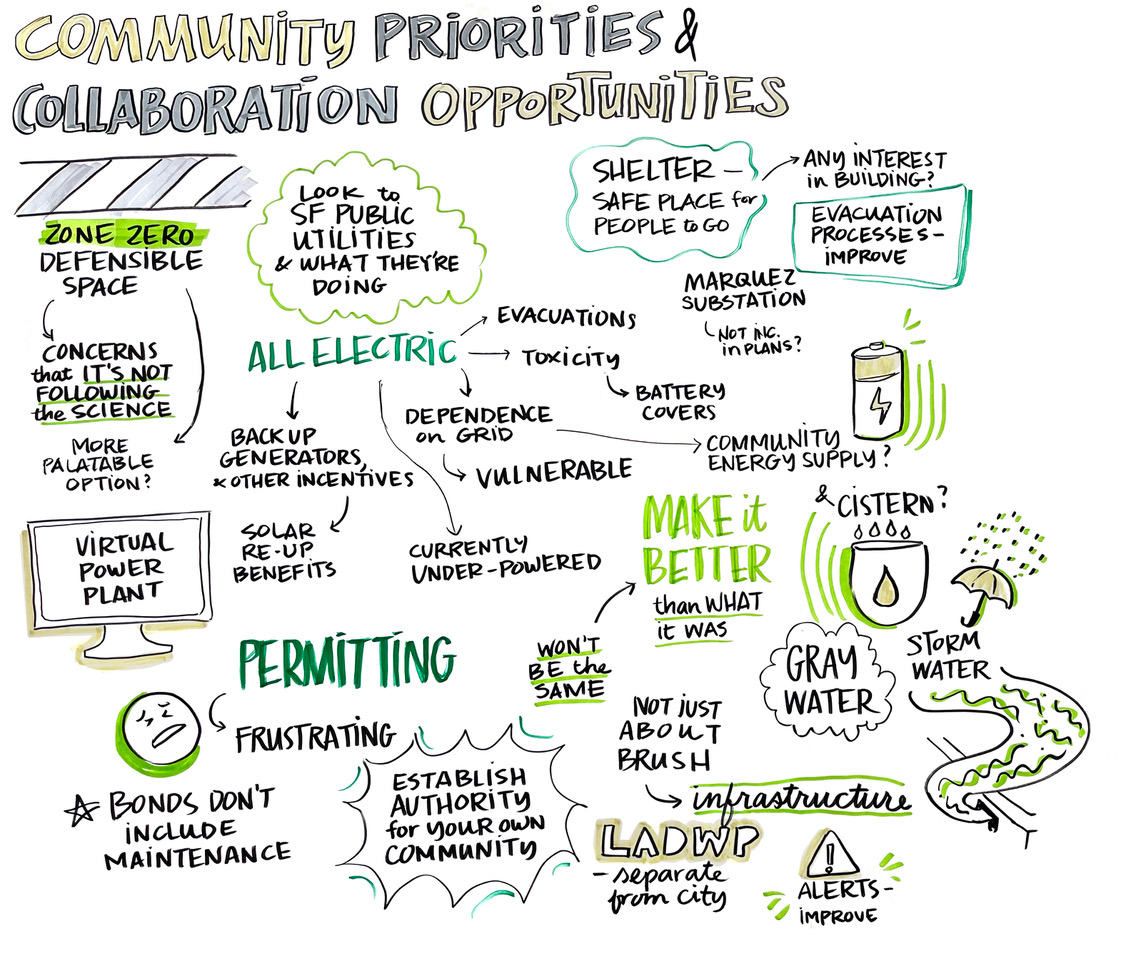 COMMUNITY PRIORITIES &
COLLABORATION OPPORTUNITIES
ZONE ZERO
DEFENSIBLE
SPACE
CONCERNS
that IT'S NOT
FOLLOWING
the SCIENCE
MORE
PALATABLE
OPTION?
LOOK to
SF PUBLIC
UTILITIES
& WHAT THEY'RE
DOING
SHELTER –
SAFE PLACE for
PEOPLE to GO
ANY INTEREST
in BUILDING?
EVACUATION
PROCESSES –
IMPROVE
MARQUEZ
SUBSTATION
NOT INC.
in PLANS?
ALL ELECTRIC
EVACUATIONS
TOXICITY
BATTERY
COVERS
DEPENDENCE
on GRID
VULNERABLE
COMMUNITY
ENERGY SUPPLY?
BACK UP
GENERATORS,
& OTHER INCENTIVES
SOLAR
RE-UP
BENEFITS
CURRENTLY
UNDER-POWERED
VIRTUAL
POWER
PLANT
& CISTERN?
MAKE it
BETTER
than WHAT
it WAS
WON'T
BE the
SAME
GRAY
WATER
STORM
WATER
PERMITTING
FRUSTRATING
BONDS DON'T
INCLUDE
MAINTENANCE
ESTABLISH
AUTHORITY
for YOUR OWN
COMMUNITY
NOT JUST
ABOUT
BRUSH
infrastructure
LADWP
– separate
from city
!
ALERTS –
IMPROVE